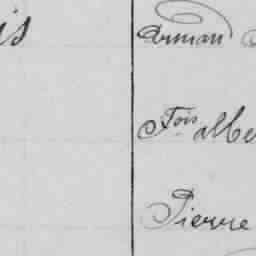 is
Arman
Fois albe
Pierre